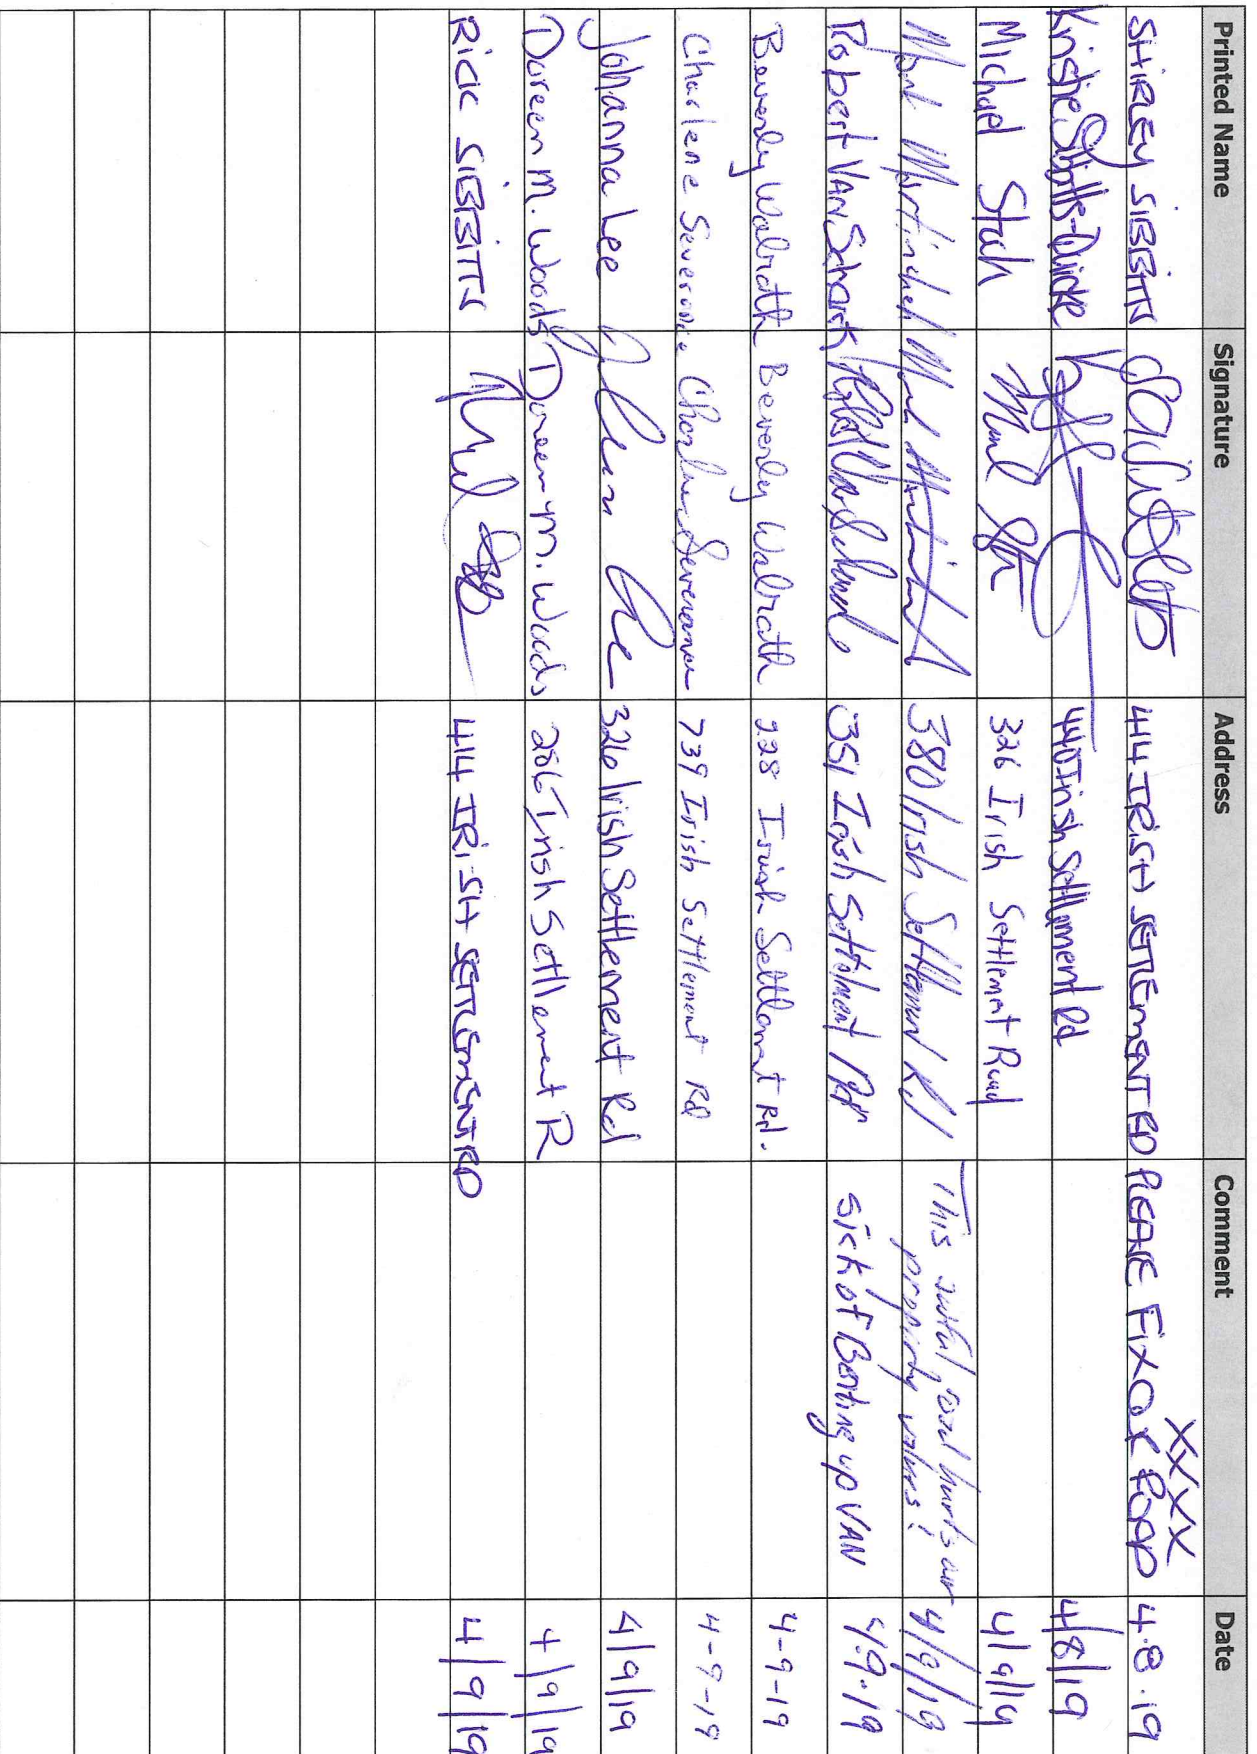 Printed Name Signature Address Comment Date
SHIRLEY SIBBITTS 414 IRISH SETTLEMENT RD PLEASE FIX OUR ROAD XXXX 4.8.19
Kristie 440 Irish Settlement Rd 4/8/19
Michael Stah 326 Irish Settlemnt Road 4/9/19
Mark Martinchek 380 Irish Settlement Rd This awful road hurts our 4/9/19
property values!
Robert VAN 351 Irish Settelment Rd sick of Beating up VAN 4.9.19
Beverly Walrath Beverly Walrath 228 Irish Settlement Rd. 4-9-19
Charlene Severance Charlene Severance 739 Irish Settlement Rd 4-9-19
Johanna Lee 326 Irish Settlement Rd 4/9/19
Doreen M. Woods Doreen M. Woods 286 Irish Settlement R 4/9/19
RICK SIBBITTS 414 IRISH SETTLEMENT RD 4/9/19